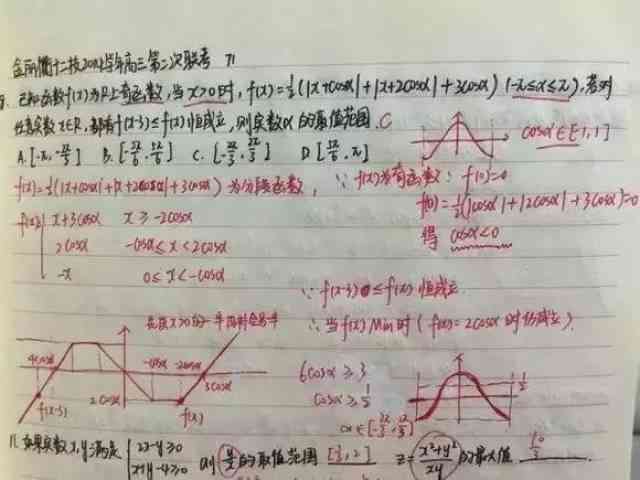 金丽衢十二校2014学年高三第二次联考 71
8. 已知函数f(x)为R上奇函数,当x>0时,f(x)=½(|x+cosα|+|x+2cosα|+3cosα) (-π≤α≤π),若对
任意实数x∈R,都有f(x-3)≤f(x)恒成立,则实数α的取值范围 C
A.[-π,-2π/3] B.[-5π/6,5π/6] C.[-2π/3,2π/3] D.[5π/6,π]
cosα∈[-1,1]
f(x)=½(|x+cosα|+|x+2cosα|+3cosα) 为分段函数,
∵ f(x)为奇函数: f(0)=0
f(0)=½(|cosα|+|2cosα|+3cosα)=0
得 cosα<0
f(x) x+3cosα x≥-2cosα
2cosα -cosα≤x<2cosα
-x 0≤x<-cosα
∵ f(x-3)≤f(x) 恒成立
∴ 当f(x) Min时 (f(x)=2cosα 时仍成立).
先在x>0的一半画时会另一半
4cosα -cosα -2cosα
3cosα
2cosα
f(x-3) f(x)
6cosα≥3
cosα≥½
α∈[-2π/3,2π/3]
½
11. 如果实数x,y满足 2x-y≥0
x+y-4≥0 则 y/x 的取值范围 [⅓,2] z=(x²+y²)/xy 的最大值 10/3